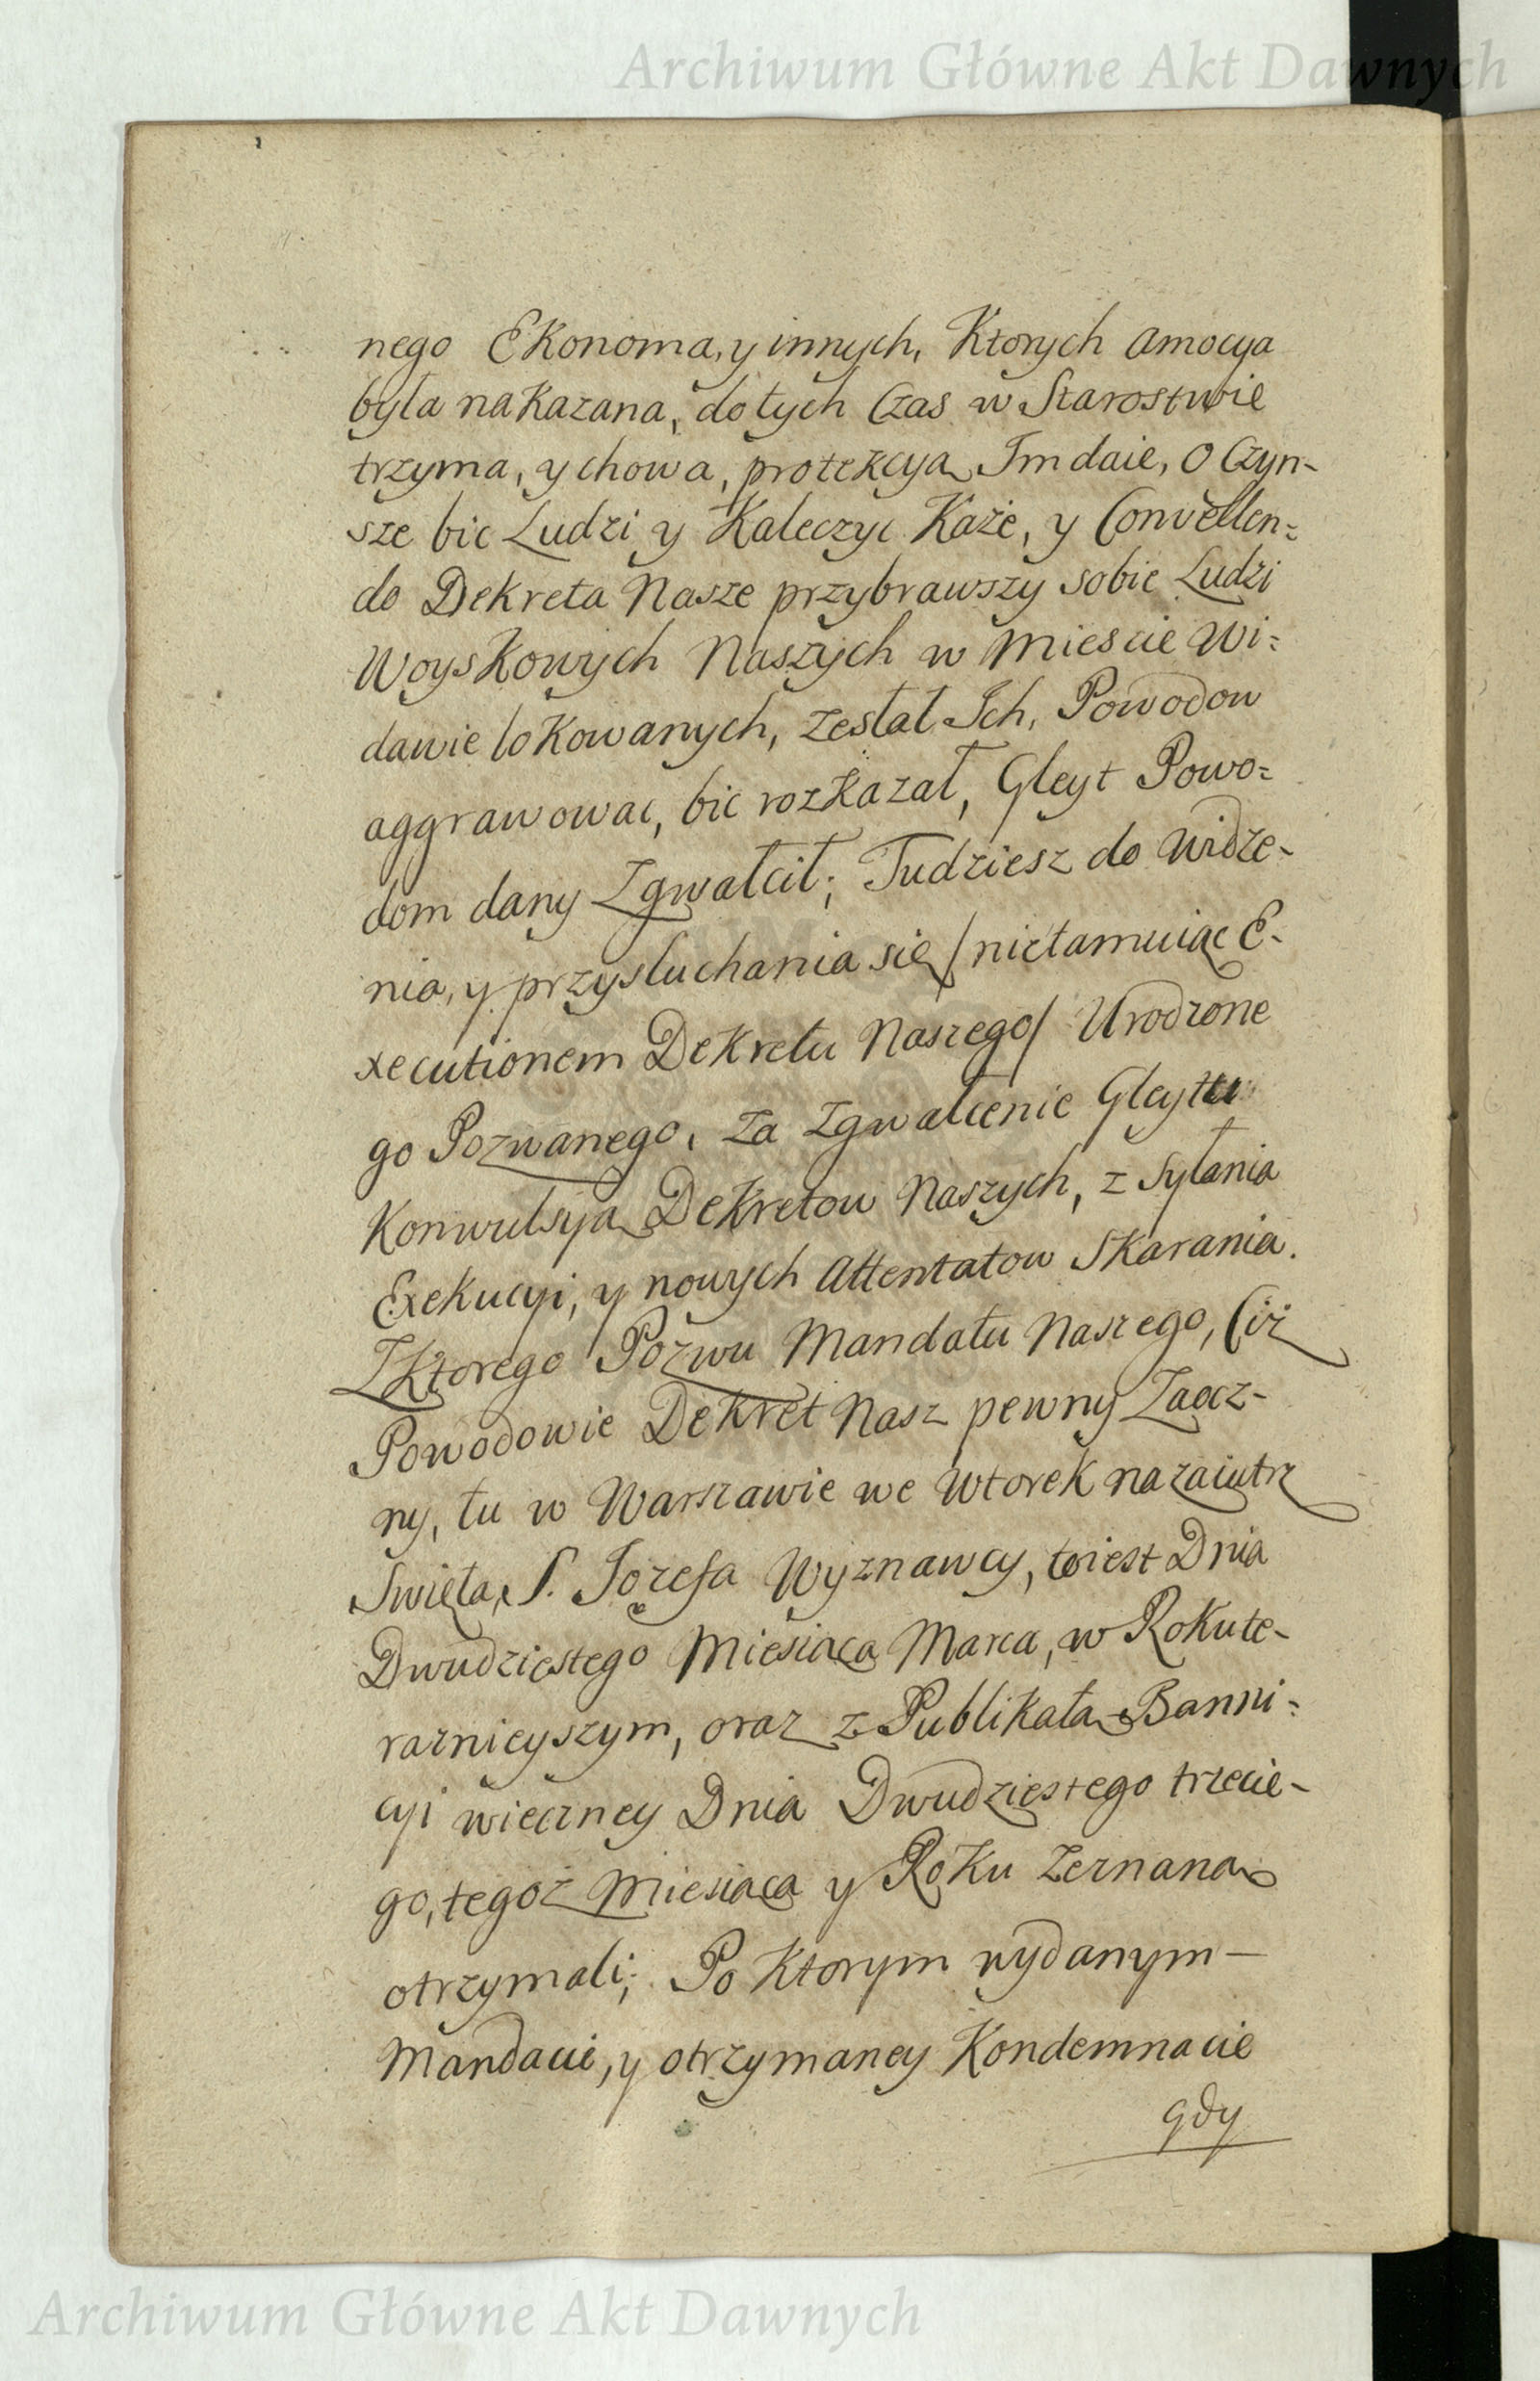 Archiwum Główne Akt Dawnych
nego Ekonoma, y innych, Ktorych amocya
była naKazana, do tych Czas w Starostwie
trzyma, y chowa, protekcyą Im daie, o Czyn-
sze bic Ludzi y Kaleczyc Każe, y Convellen=
do Dekreta Nasze przybrawszy sobie Ludzi
WoysKowych Naszych w Miescie Wi=
dawie loKowanych, zesłał Ich, Powodow
aggrawowac, bic rozKazał, Gleyt Powo=
dom dany Zgwałcił; Tudziesz do Widze-
nia, y przysłuchania się /nietamuiąc E-
xecutionem DeKretu Naszego/ Urodzone
go Pozwanego, za zgwałcenie Gleytu
Konwulsyą DeKretow Naszych, z Syłania
ExeKucyi, y nowych Attentatow SKarania.
Z Ktorego Pozwu Mandatu Naszego, Ciż
Powodowie DeKret Nasz pewny Zaocz-
ny, tu w Warszawie we WtoreK nazaiutrz
Swięta, S. Jozefa Wyznawcy, toiest Dnia
Dwudziestego Miesiąca Marca, w RoKu te-
raznieyszym, oraz z PubliKatą Banni=
cyi wieczney Dnia Dwudziestego trzecie-
go, tegoż Miesiąca y RoKu zeznaną
otrzymali; Po Ktorym wydanym —
Mandacie, y otrzymaney Kondemnacie
gdy
Archiwum Główne Akt Dawnych